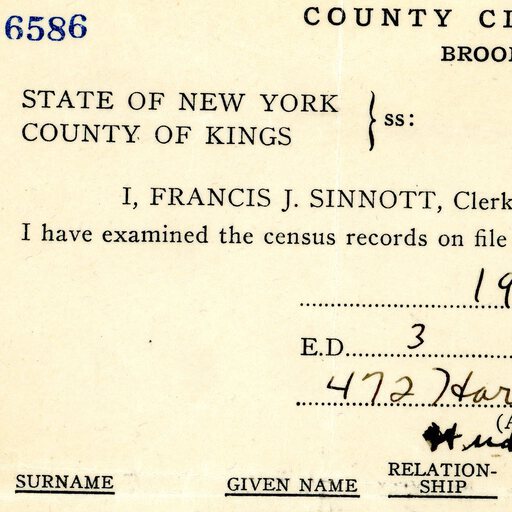 6586
COUNTY CL
BROO
STATE OF NEW YORK
COUNTY OF KINGS } ss:
I, FRANCIS J. SINNOTT, Clerk
I have examined the census records on file
19
E.D. 3
472 Har
(A
SURNAME GIVEN NAME RELATION-
SHIP